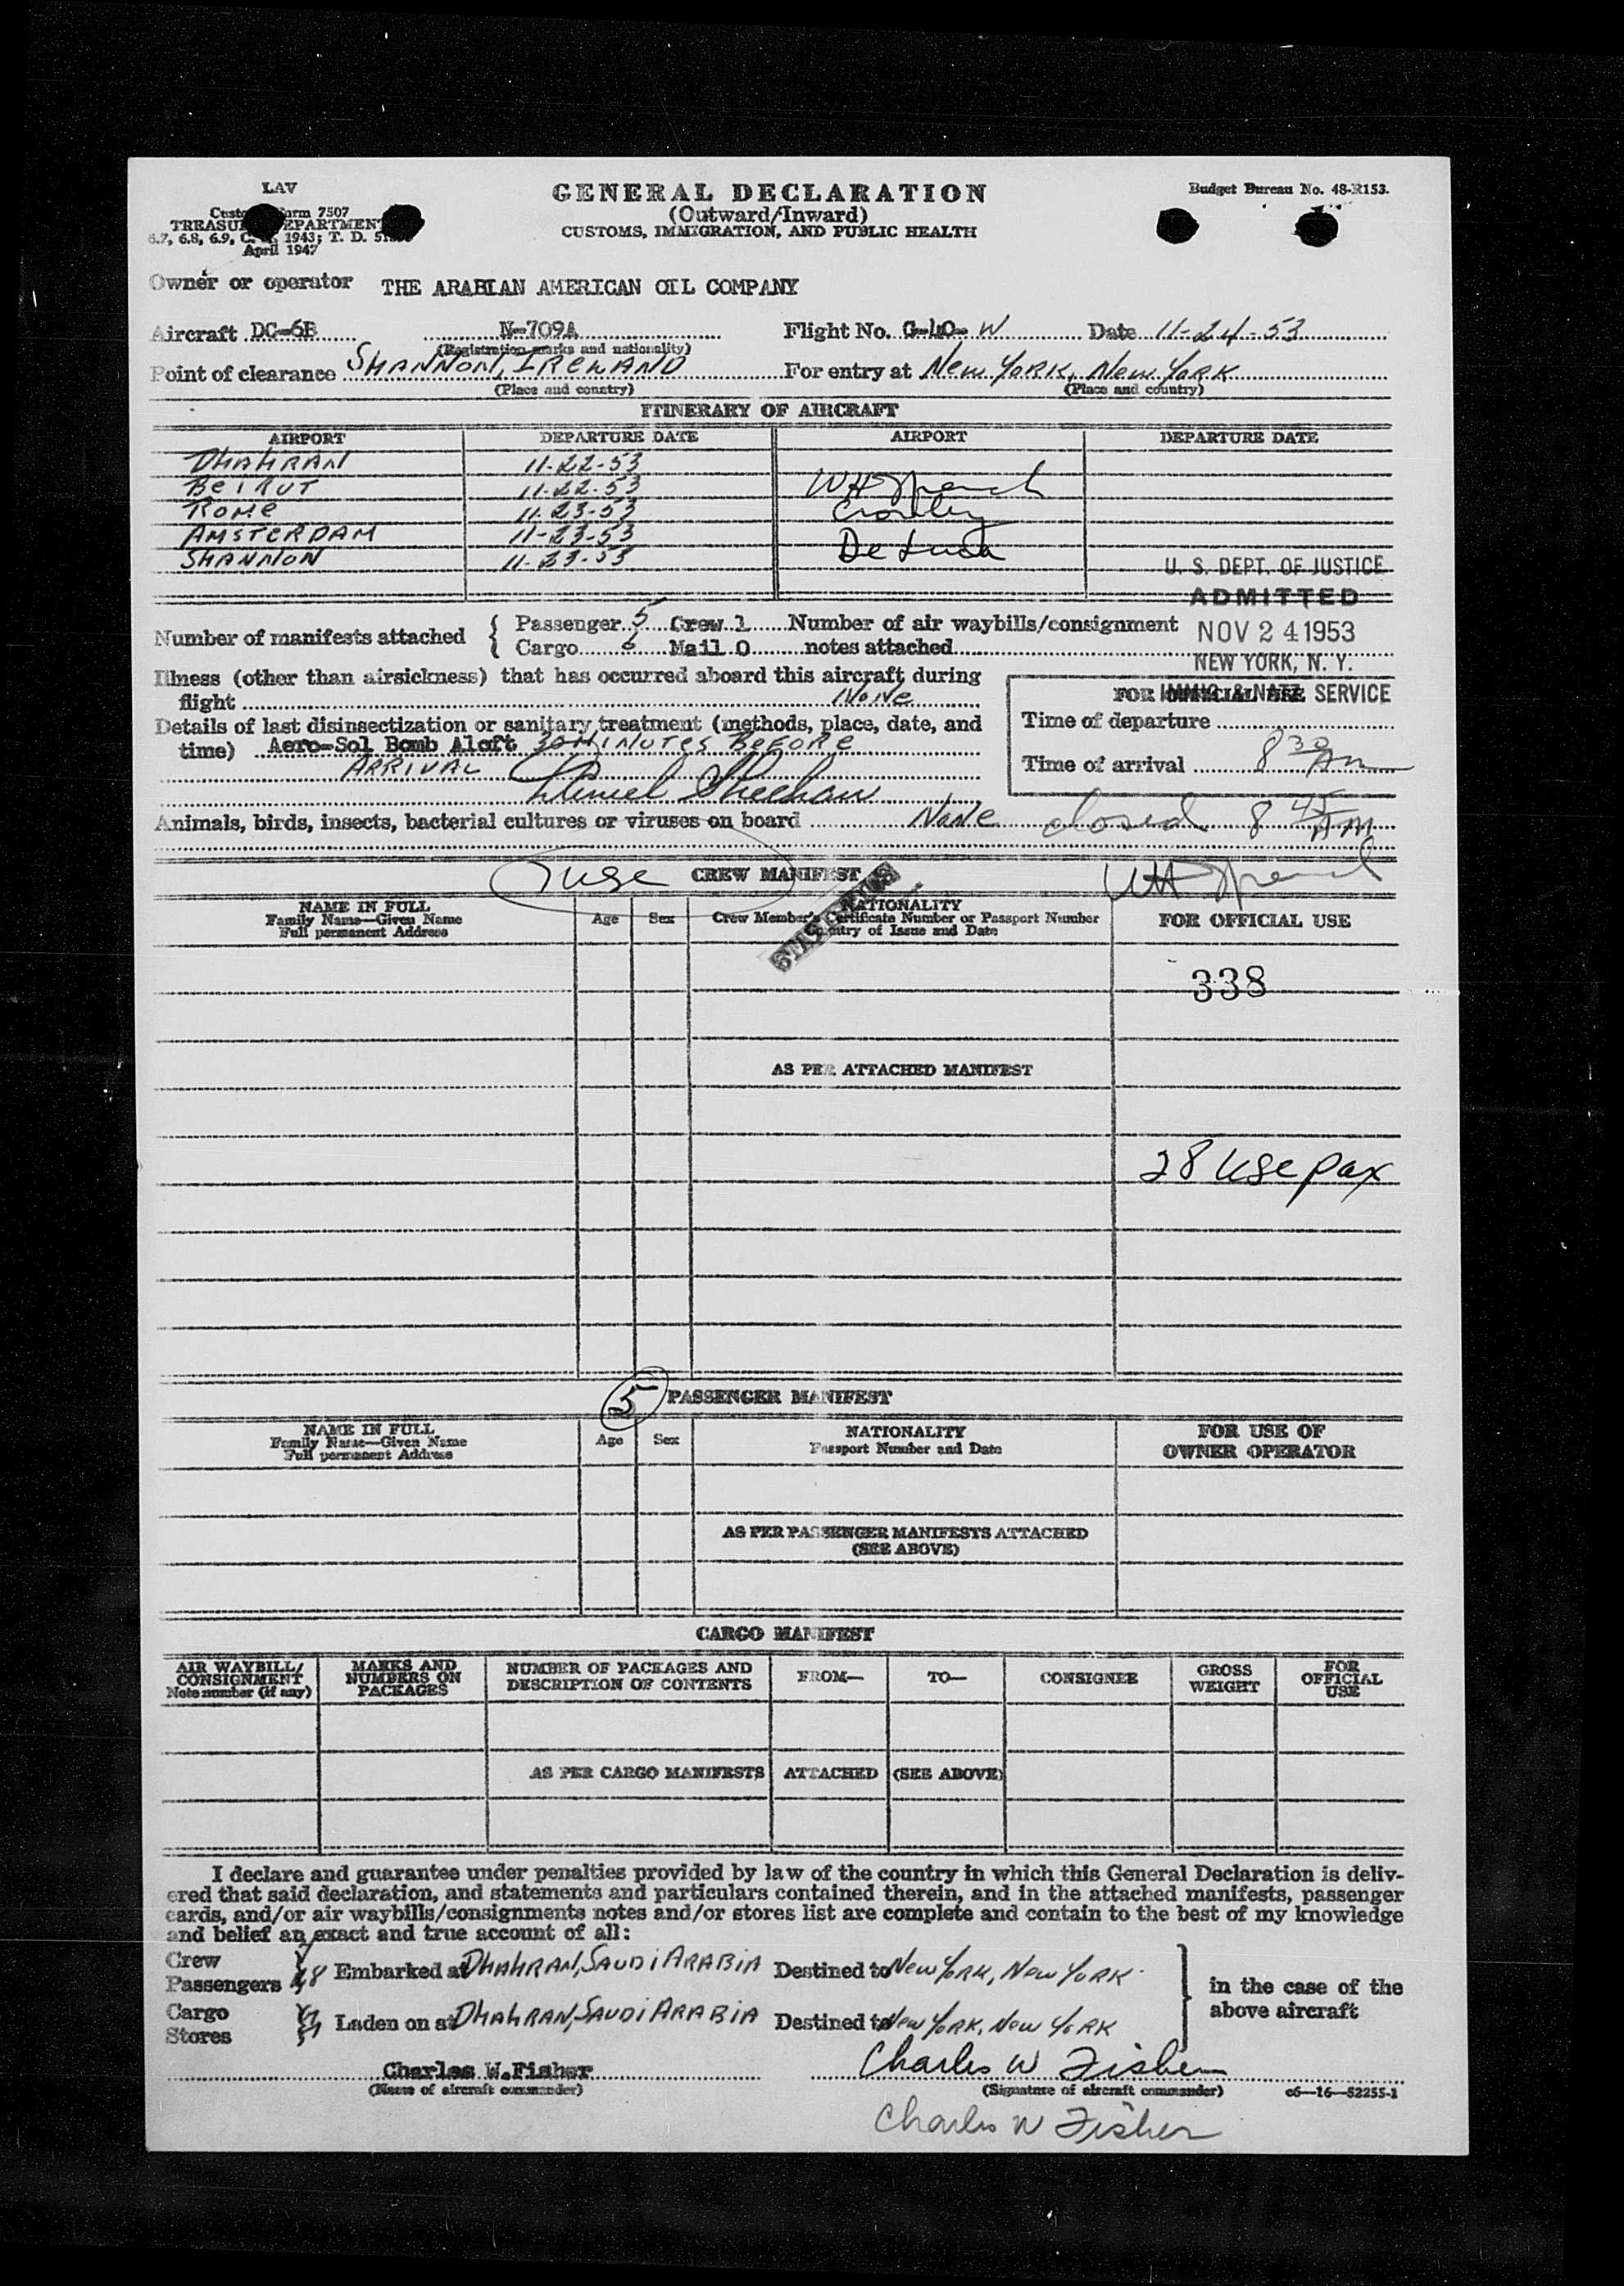 LAV
GENERAL DECLARATION
Budget Bureau No. 48-R153.
(Outward/Inward)
CUSTOMS, IMMIGRATION, AND PUBLIC HEALTH
Form 7507
TREASURY DEPARTMENT
6.7, 6.8, 6.9, 1943; T. D.
April 1947
Owner or operator THE ARABIAN AMERICAN OIL COMPANY
Aircraft DC-6B N-709A Flight No. G-40- W Date 11-24-53
(Registration marks and nationality)
Point of clearance SHANNON, IRELAND For entry at New York, New York
(Place and country) (Place and country)
ITINERARY OF AIRCRAFT
AIRPORT DEPARTURE DATE AIRPORT DEPARTURE DATE
DHAHRAN 11-22-53
BEIRUT 11-22-53
ROME 11-23-53
AMSTERDAM 11-23-53
SHANNON 11-23-53
U. S. DEPT. OF JUSTICE
ADMITTED
NOV 24 1953
NEW YORK, N. Y.
IMMIG. & NATZ. SERVICE
Number of manifests attached { Passenger 5 Crew 1 Number of air waybills/consignment
Cargo Mail 0 notes attached
Illness (other than airsickness) that has occurred aboard this aircraft during
flight None
FOR OFFICIAL USE
Details of last disinsectization or sanitary treatment (methods, place, date, and
time) Aero-Sol Bomb Aloft 30 MINUTES BEFORE
ARRIVAL
Daniel Sheehan
Time of departure
Time of arrival 8 30 AM
Animals, birds, insects, bacterial cultures or viruses on board None closed 8 45 AM
7 USC CREW MANIFEST
NAME IN FULL
Family Name—Given Name
Full permanent Address
Age Sex
NATIONALITY
Crew Member's Certificate Number or Passport Number
Country of Issue and Date
FOR OFFICIAL USE
338
AS PER ATTACHED MANIFEST
28 usc pax
5 PASSENGER MANIFEST
NAME IN FULL
Family Name—Given Name
Full permanent Address
Age Sex
NATIONALITY
Passport Number and Date
FOR USE OF
OWNER OPERATOR
AS PER PASSENGER MANIFESTS ATTACHED
(SEE ABOVE)
CARGO MANIFEST
AIR WAYBILL/
CONSIGNMENT
Note number (if any)
MARKS AND
NUMBERS ON
PACKAGES
NUMBER OF PACKAGES AND
DESCRIPTION OF CONTENTS
FROM—
TO—
CONSIGNEE
GROSS
WEIGHT
FOR
OFFICIAL
USE
AS PER CARGO MANIFESTS ATTACHED (SEE ABOVE)
I declare and guarantee under penalties provided by law of the country in which this General Declaration is deliv-
ered that said declaration, and statements and particulars contained therein, and in the attached manifests, passenger
cards, and/or air waybills/consignments notes and/or stores list are complete and contain to the best of my knowledge
and belief an exact and true account of all:
Crew 7
Passengers 28 Embarked at DHAHRAN, SAUDI ARABIA Destined to New York, New York
in the case of the
above aircraft
Cargo
Stores Laden on at DHAHRAN, SAUDI ARABIA Destined to New York, New York
Charles W. Fisher Charles W Fisher
(Name of aircraft commander) (Signature of aircraft commander) c6—16—52255-1
Charles W Fisher